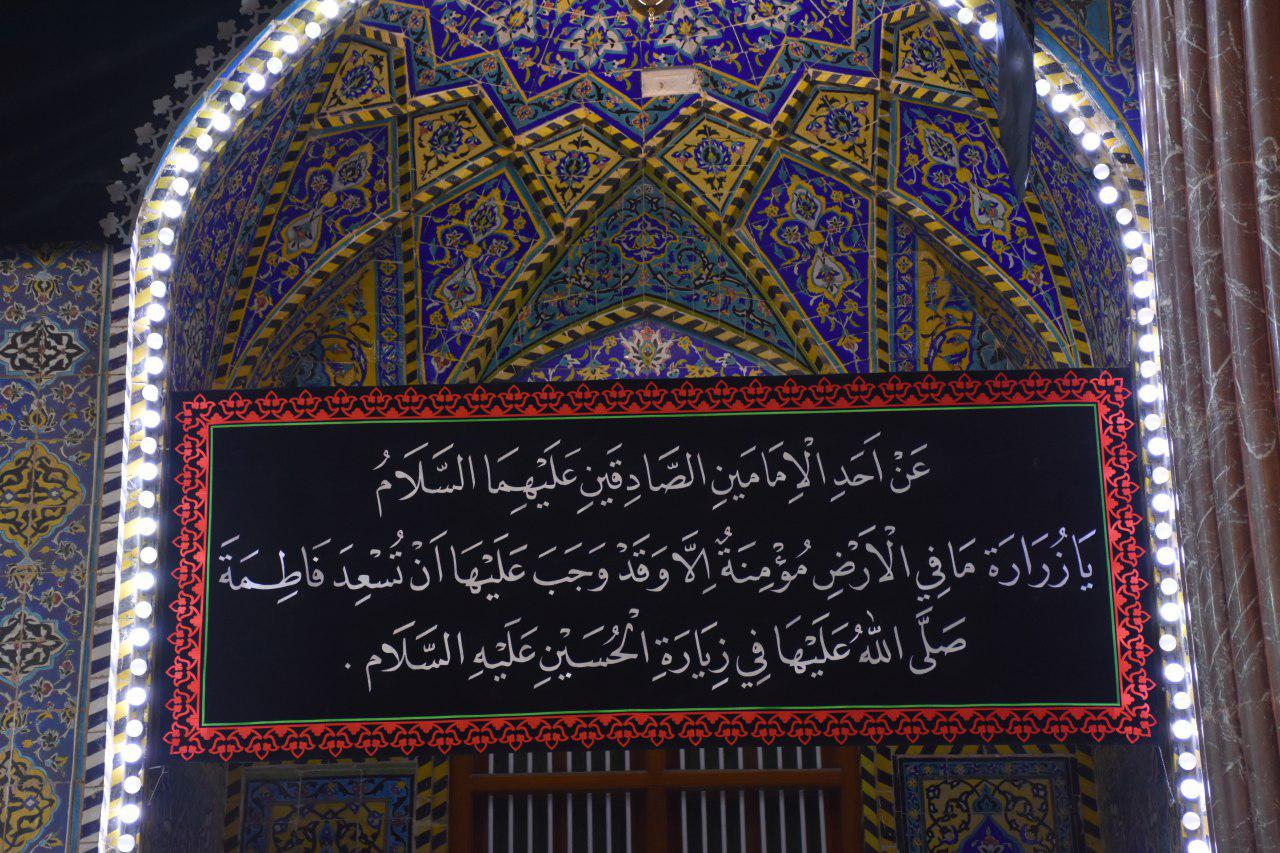 عَنْ اَحَدِ الْاِمَامَينِ الصَّادِقَينِ عَلَيْهِمَا السَّلَامُ
يَازُرَارَة مَافِي الْاَرْضِ مُؤْمِنَةٌ اِلَّا وَقَدْ وَجَبَ عَلَيْهَا اَنْ تُسْعِدَ فَاطِمَةَ
صَلَّى اللهُ عَلَيْهَا فِي زِيَارَةِ الْحُسَيْنِ عَلَيْهِ السَّلَامُ .